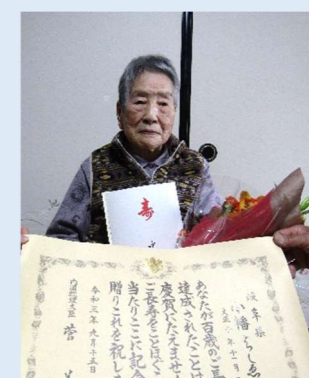 寿
岐阜県
あなたが百歳のご長
達成されたことは
慶賀にたえませ
ご長寿をことほぐ
当たりここに記念
贈りこれを祝し
令和三年九月十五日
内閣総理大臣 菅